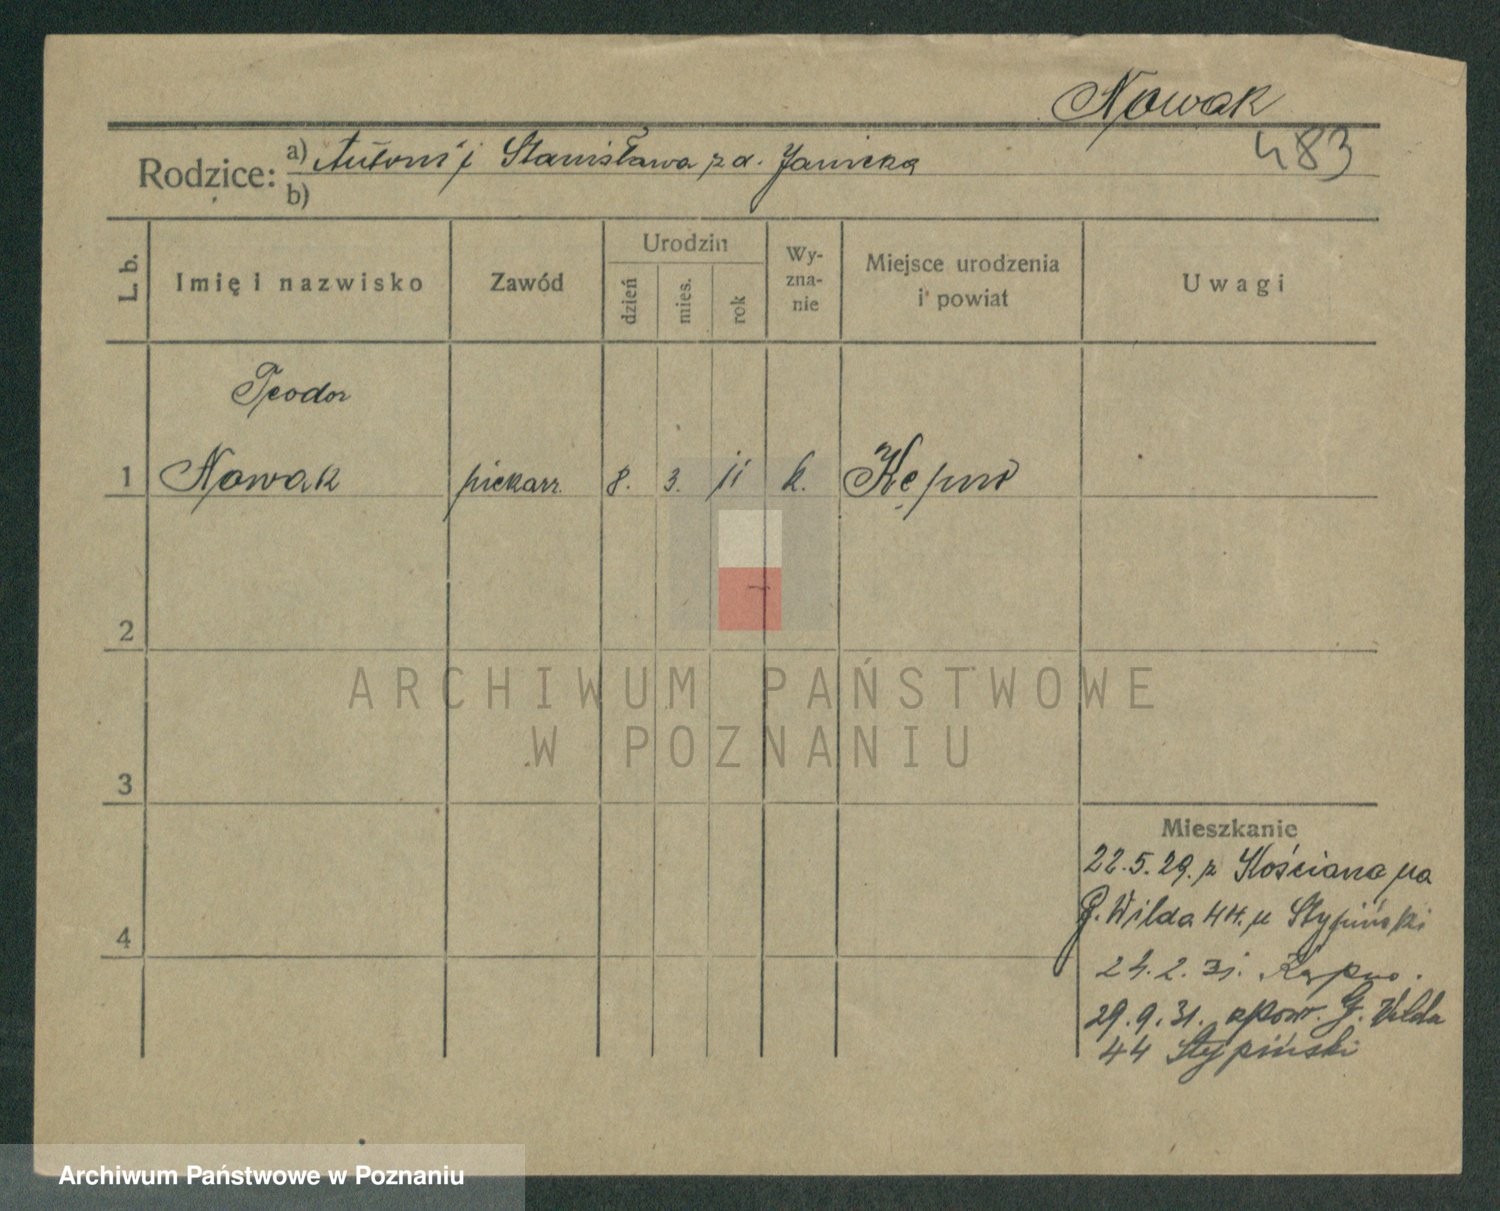 Nowak
483
Rodzice: a) Antoni i Stanisława z d. Janicka
b)
L. b. Imię i nazwisko Zawód Urodzin dzień mies. rok Wy-zna-nie Miejsce urodzenia i powiat Uwagi
Teodor
1 Nowak piekarz 8. 3. 11 k. Kępno
2
3
4
Mieszkanie
22.5.29. z Kościana na
G. Wilda 44. u Stypiński
24.2.31. Kępno.
29.9.31. z pow. G. Wilda
44 Stypiński
ARCHIWUM PAŃSTWOWE
W POZNANIU
Archiwum Państwowe w Poznaniu